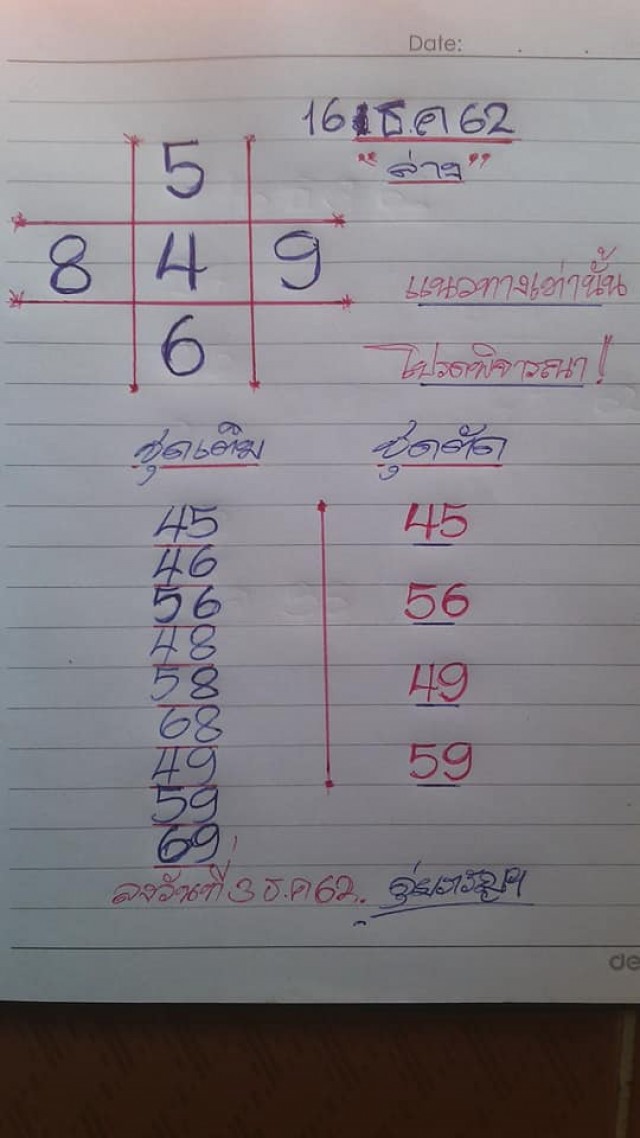 Date:
16 ธ.ค 62
"ล่าง"
5
8 4 9
6
แนวทางเท่านั้น
โปรดพิจารณา!
ชุดเต็ม
45
46
56
48
58
68
49
59
69
ชุดตัด
45
56
49
59
ลงวันที่ 3 ธ.ค 62.
de